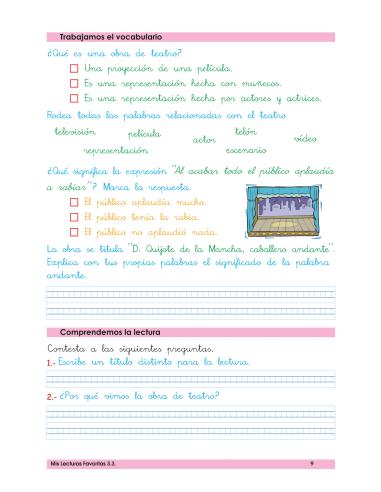 Trabajamos el vocabulario
¿Qué es una obra de teatro?
Una proyección de una película.
Es una representación hecha con muñecos.
Es una representación hecha por actores y actrices.
Rodea todas las palabras relacionadas con el teatro
televisión película actor telón vídeo
representación escenario
¿Qué significa la expresión "Al acabar todo el público aplaudía
a rabiar"? Marca la respuesta.
El público aplaudía mucho.
El público tenía la rabia.
El público no aplaudió nada.
La obra se titula "D. Quijote de la Mancha, caballero andante".
Explica con tus propias palabras el significado de la palabra
andante.
Comprendemos la lectura
Contesta a las siguientes preguntas.
1.- Escribe un título distinto para la lectura.
2.- ¿Por qué vimos la obra de teatro?
Mis Lecturas Favoritas 3.3. 9